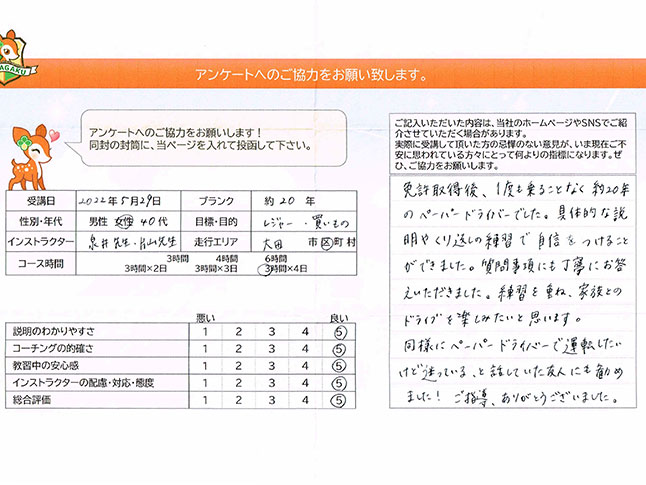 AGAKU
アンケートへのご協力をお願い致します。
アンケートへのご協力をお願いします！
同封の封筒に、当ページを入れて投函して下さい。
受講日 2022年5月29日 ブランク 約20年
性別・年代 男性 女性 40代 目標・目的 レジャー・買いもの
インストラクター 泉井先生・片山先生 走行エリア 大田 市区町村
コース時間 3時間 4時間 6時間
3時間×2日 3時間×3日 3時間×4日
悪い 良い
説明のわかりやすさ 1 2 3 4 5
コーチングの的確さ 1 2 3 4 5
教習中の安心感 1 2 3 4 5
インストラクターの配慮・対応・態度 1 2 3 4 5
総合評価 1 2 3 4 5
ご記入いただいた内容は、当社のホームページやSNSでご紹
介させていただく場合があります。
実際に受講して頂いた方の忌憚のない意見が、いま現在ご不
安に思われている方々にとって何よりの指標になります。ぜ
ひ、ご協力をお願いします。
免許取得後、1度も乗ることなく約20年
のペーパードライバーでした。具体的な説
明やくり返しの練習で自信をつけること
ができました。質問事項にも丁寧にお答
えいただきました。練習を重ね、家族との
ドライブを楽しみたいと思います。
同様にペーパードライバーで運転したい
けど迷っている、と話していた友人にも勧め
ました！ご指導、ありがとうございました。